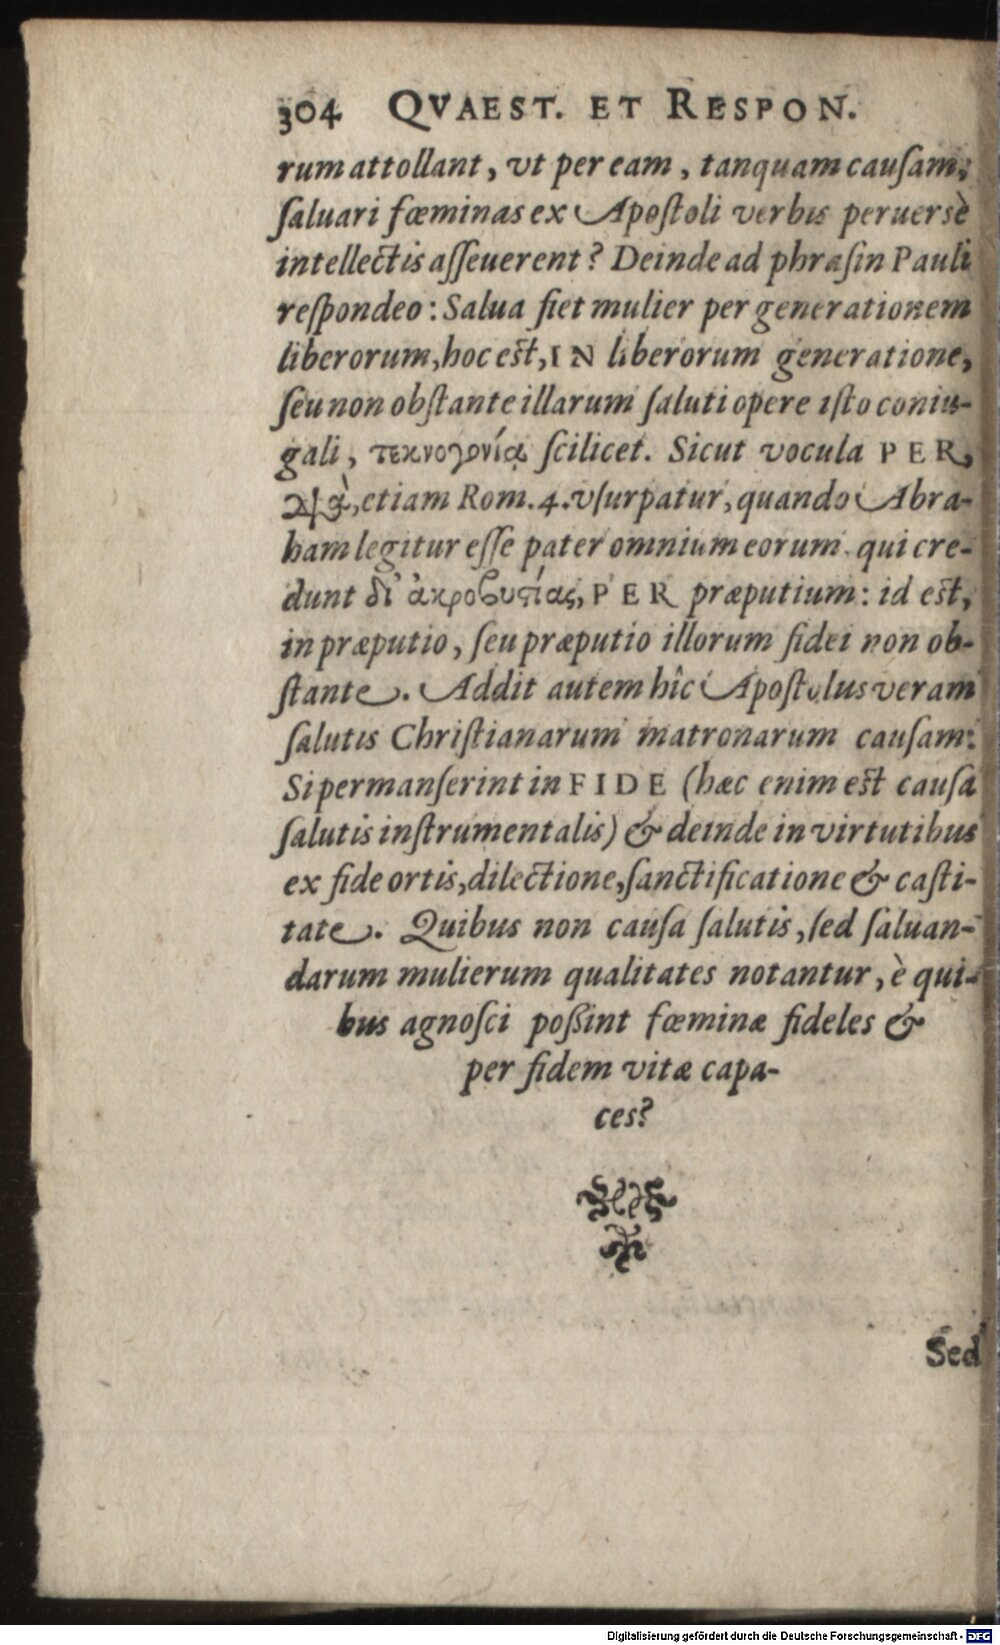 304 QVAEST. ET RESPON.
rum attollant, vt per eam, tanquam cauſam,
ſaluari fœminas ex Apoſtoli verbis peruersè
intellectis aſſeuerent? Deinde ad phraſin Pauli
reſpondeo: Salua fiet mulier per generationem
liberorum, hoc eſt, IN liberorum generatione,
ſeu non obſtante illarum ſaluti opere iſto coniu-
gali, τεκνογονίᾳ ſcilicet. Sicut vocula PER,
διὰ, etiam Rom. 4. vſurpatur, quando Abra-
ham legitur eſſe pater omnium eorum qui cre-
dunt δι' ἀκροβυστίας, PER præputium: id eſt,
in præputio, ſeu præputio illorum fidei non ob-
ſtante. Addit autem hîc Apoſtolus veram
ſalutis Chriſtianarum matronarum cauſam:
Si permanſerint in FIDE (hæc enim eſt cauſa
ſalutis inſtrumentalis) & deinde in virtutibus
ex fide ortis, dilectione, ſanctificatione & caſti-
tate. Quibus non cauſa ſalutis, ſed ſaluan-
darum mulierum qualitates notantur, è qui-
bus agnoſci poßint fœminæ fideles &
per fidem vitæ capa-
ces?
Sed
Digitalisierung gefördert durch die Deutsche Forschungsgemeinschaft - DFG